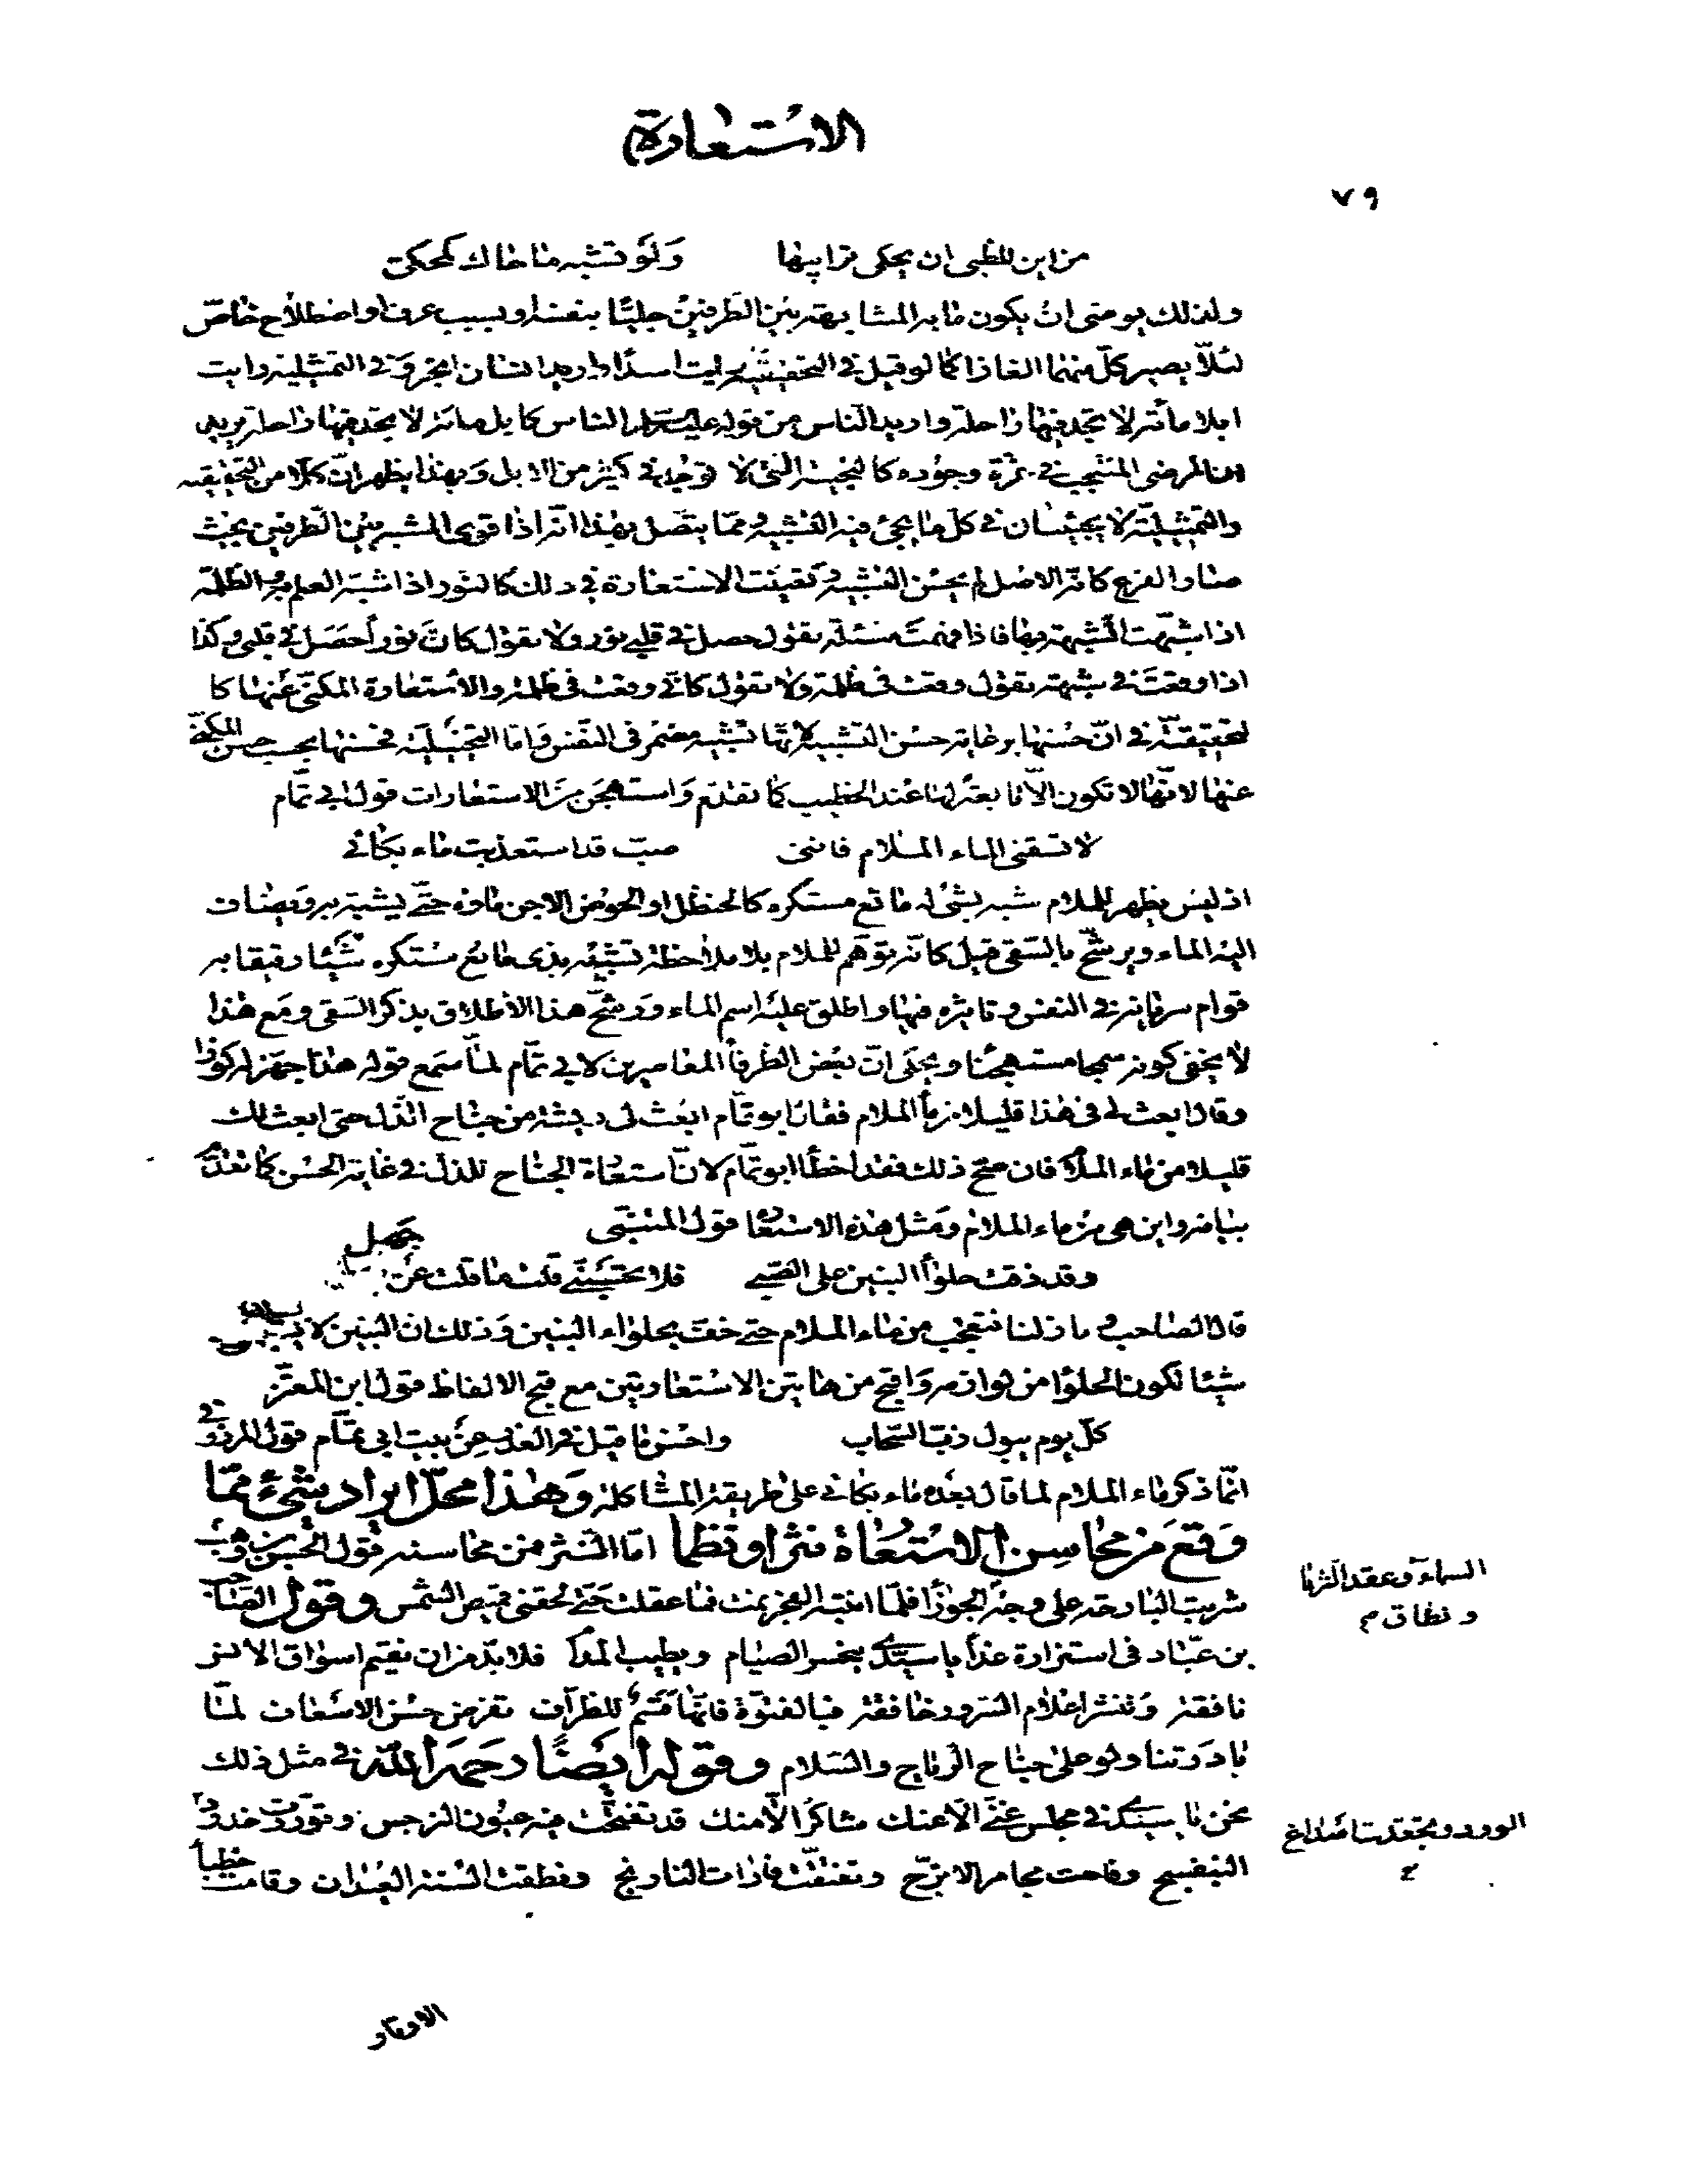 الاستعارة
٧٩
من اين للظبى ان يحكى ترايبها ولو تشبه ما حاك كمحكى
ولذلك يوصى ان يكون ما به المشابهة بين الطرفين جليّا بنفسه او بسبب عرف او اصطلاح خاصّ
لئلّا يصير كلّ منهما الغازا كما لو قيل فى التحقيقيّة رايت اسدًا واريد انسان ابخر وفى التمثيلية رايت
ابلا مائة لا تجد فيها راحلة واريد الناس من قوله عليه السلام الناس كابل مائة لا تجد فيها راحلة يريد
ان المرضى المنتجب فى عزة وجوده كالنجيبة التى لا توجد فى كثير من الابل وبهذا يظهر انّ كلّا من التحقيقيه
والتمثيليّة لا يجيئان فى كلّ ما يجئ فيه التشبيه وممّا يتصل بهذا انّه اذا قوى الشبه بين الطرفين بحيث
صار الفرع كانّه الاصل لم يحسن التشبيه وتعينت الاستعارة فى ذلك كالنور اذا شبّه العلم به والظلمة
اذا شبّهت الشبهة بها فاذا فهمت مسئلة تقول حصل فى قلبى نور ولا تقول كانّ نوراً حصل فى قلبى وكذا
اذا وقعت فى شبهة تقول وقعت فى ظلمة ولا تقول كانّى وقعت فى ظلمة والاستعارة المكنىّ عنها كا
لتحقيقيّة فى انّ حسنها برعاية حسن التشبيه لانّها تشبيه مضمر فى النفس وامّا التخييليّة فحسنها بحسب حسن المكنىّ
عنها لانّها لا تكون الّا تابعة لها عند الخطيب كما تقدّم واستهجن من الاستعارات قول ابى تمّام
لا تسقنى الماء الملام فاننى صبّ قد استعذبت ماء بكائى
اذ ليس يظهر للملام شبه بشئ له مائع مستكره كالحنظل او الحوض الاجن ماؤه حتّى يشبّه به ويضاف
اليه الماء ويرشّح بالسّقى قيل كانّه توهّم للملام بلا ملاحظة تشبيه بذى مائع مستكره شيئا رقيقا به
قوام سرايته فى النفس وتاثيره فيها واطلق عليه اسم الماء ورشّح هذا الاطلاق بذكر السّقى ومع هذا
لا يخفى كونه سمجا مستهجنا ويحكى انّ بعض الظرفاء المعاصرين لابى تمّام لمّا سمع قوله هذا جهّز له كوزا
وقال ابعث لى فى هذا قليلا من ماء الملام فقال ابو تمّام ابعث لى ريشة من جناح الذلّ حتى ابعث لك
قليلا من ماء الملام فان صحّ ذلك فقد اخطأ ابو تمّام لانّ استعارة الجناح للذلّ فى غاية الحسن كما تقدّم
بيانه واين هى من ماء الملام ومثل هذه الاستعارة قول المتنبّى
وقد ذقت حلواء البنين على الصّبى فلا تحسبنّى قلت ما قلت عن جهل
قال الصّاحب ما زلنا نتعجّب من ماء الملام حتى خفّ بحلواء البنين وذلك انّ البنين لا
شيئا تكون الحلوا من لوازمه واقبح من هاتين الاستعارتين مع قبح الالفاظ قول ابن المعتزّ
كلّ يوم يبول زبّ السّحاب واحسن ما قيل فى العذر عن بيت ابى تمّام قول المرزوقى
انّما ذكر ماء الملام لما قال بعده ماء بكائى على طريقة المشاكلة وهذا محلّ ايراد شئ ممّا
وقع من محاسن الاستعارة نثرا ونظما امّا النّثر فمن محاسنه قول الحسن بن وهب
شربت البارحة على وجه الجوزاء فلمّا انتبه الفجر نمت فما عقلت حتّى لحقنى قميص الشمس وقول الصّاحب
السماء وعقد الثريا
ونطاق م
بن عبّاد فى استزارة غداً يا سيّدى ينحسر الصّيام ويطيب المدام فلابدّ من ان نقيم اسواق الانس
نافقة وننشر اعلام السّرور خافقة فبالفتوّة فانّها قسم للظراف تفرض حسن الاسعاف لمّا
بادرتنا ولو على جناح الرياح والسّلام وقوله ايضًا رحمه اللّه فى مثل ذلك
نحن يا سيّدى فى مجلس غنىّ الّا عنك شاكر الّا منك قد تفتّحت فيه عيون النرجس وتورّدت خدود
الورد وتجعّدت اصداغ
ع
البنفسج وفاحت مجامر الاترّج وتفتّقت فارات النارنج ونطقت السنة العيدان وقامت خطباء
الاوتار